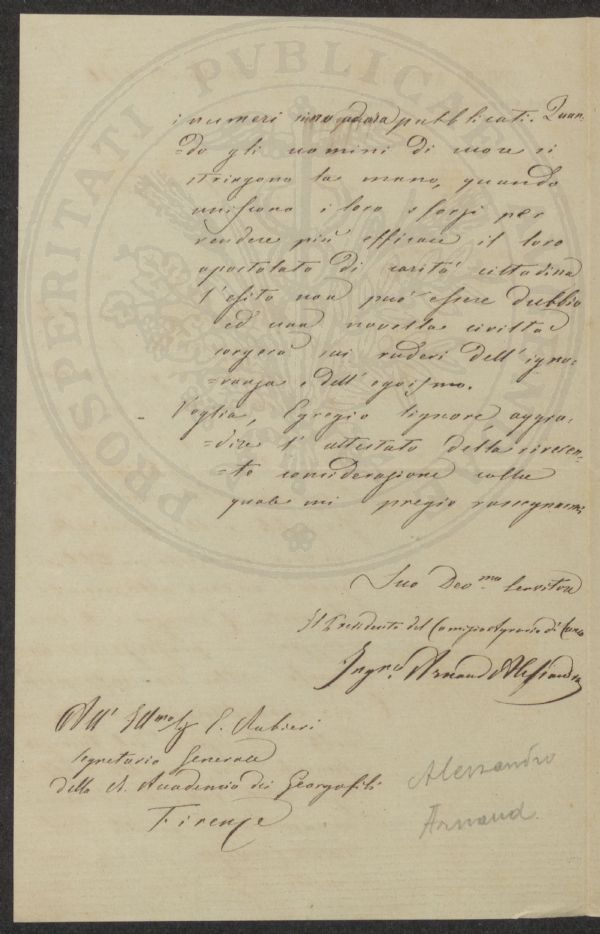 i numeri sino ad ora pubblicati. Quan-
=do gli uomini di cuore si
stringono la mano, quando
uniscono i loro sforzi per
rendere più efficace il loro
apostolato di carità cittadina
l'esito non può essere dubbio
ed una novella civiltà
sorgerà sui ruderi dell'igno-
=ranza e dell'egoismo.
Voglia, Egregio Signore, aggra-
=dire l'attestato della riveren-
=te considerazione colla
quale mi pregio rassegnarmi
Suo Dev.mo Servitore
Il Presidente del Comizio Agrario di Cuneo
Ingre. Arnaud Alessandro
All' Illmo Sig E. Rubieri
Segretario Generale
della R. Accademia dei Georgofili
Firenze
Alessandro
Arnaud.
PROSPERITATI PVBLICAE